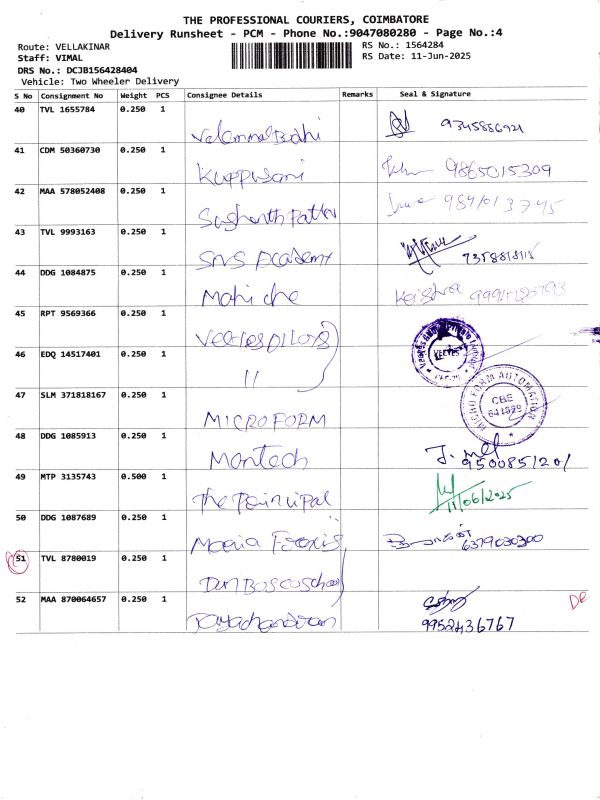 THE PROFESSIONAL COURIERS, COIMBATORE
Delivery Runsheet - PCM - Phone No.:9047080280 - Page No.:4
Route: VELLAKINAR
RS No.: 1564284
Staff: VIMAL
RS Date: 11-Jun-2025
DRS No.: DCJB156428404
Vehicle: Two Wheeler Delivery
S No Consignment No Weight PCS Consignee Details Remarks Seal & Signature
40 TVL 1655784 0.250 1
9345886921
41 CDM 50360730 0.250 1
Kuppusani 9865015309
42 MAA 578052408 0.250 1
43 TVL 9993163 0.250 1
SNS Academy
44 DDG 1084875 0.250 1
45 RPT 9569366 0.250 1
46 EDQ 14517401 0.250 1
VEECYES
11
47 SLM 371818167 0.250 1
MICRO FORM AUTOMATION
CBE
MICROFORM
48 DDG 1085913 0.250 1
Montech 9500851201
49 MTP 3135743 0.500 1
The Poincipal 11/06/2025
50 DDG 1087689 0.250 1
6379030300
51 TVL 8780019 0.250 1
Don Bosco School
52 MAA 870064657 0.250 1
9952436767